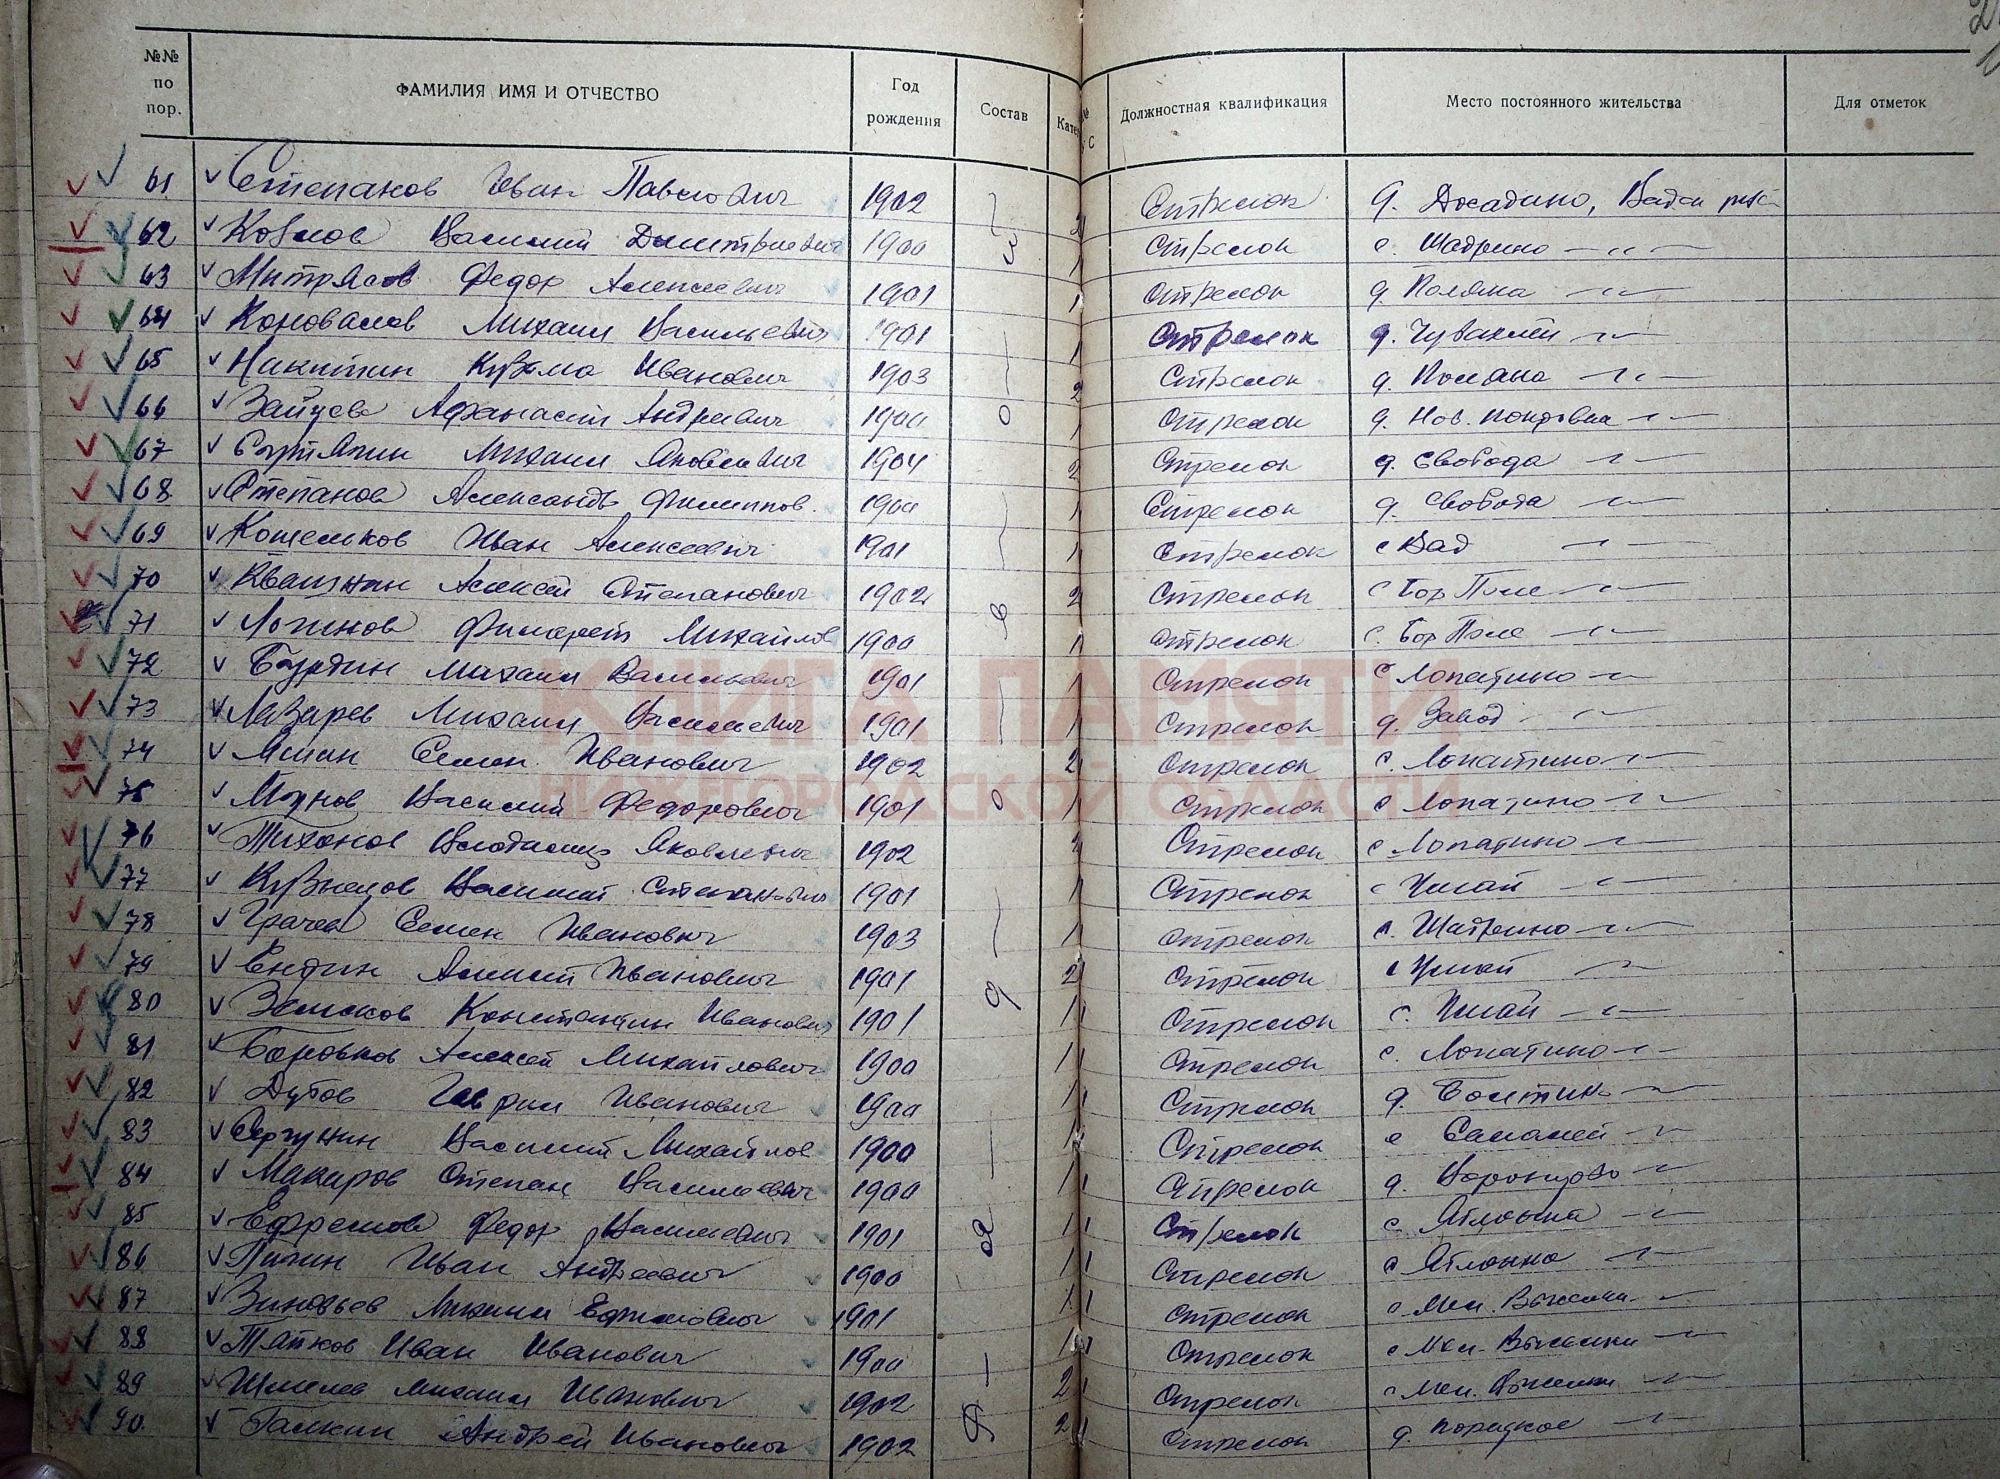 №№ по пор. ФАМИЛИЯ ИМЯ И ОТЧЕСТВО Год рождения Состав Кате Должностная квалификация Место постоянного жительства Для отметок
61. Степанов Иван Павлович 1902 Стрелок д. Досадино, Вадск
62 Козлов Василий Дмитриевич 1900 Стрелок с. Шадрино — " —
63 Митрясов Федор Алексеевич 1901 1 Стрелок д Поляна — " —
64 Коновалов Михаил Васильевич 1901 1 Стрелок д. — " —
65 Никитин Кузьма Иванович 1903 2 Стрелок д. Поляна — " —
66 Зайцев Афанасий Андреевич 1900 1 Стрелок д. Нов. Покровка — " —
67 Михаил Яковлевич 1904 2 Стрелок д. Свобода — " —
68 Степанов Александр Филиппов. 1900 1 Стрелок д. Свобода — " —
69 Кошельков Иван Алексеевич 1901 1 Стрелок с Вад — " —
70 Квашнин Алексей Степанович 1902 2 Стрелок с Бор Поле — " —
71 Логинов Филарет Михайлов 1900 1 Стрелок с. Бор Поле — " —
72 Бурдин Михаил Васильевич 1901 1 Стрелок с Лопатино — " —
73 Лазарев Михаил Васильевич 1901 1 Стрелок д. Завод — " —
74 Семен Иванович 1902 2 Стрелок с. Лопатино — " —
75 Василий Федорович 1901 1 Стрелок с Лопатино — " —
76 Тихонов Владимир Яковлевич 1902 Стрелок с Лопатино — " —
77 Кузнецов Василий Степанович 1901 1 Стрелок с Умай — " —
78 Грачев Семен Иванович 1903 1 Стрелок с. Шадрино — " —
79 Ендин Алексей Иванович 1901 2 Стрелок с Умай — " —
80 Земсков Константин Иванович 1901 1 Стрелок с. Умай — " —
81 Боровков Алексей Михайлович 1900 1 Стрелок с. Лопатино — " —
82 Дутов Иванович 1900 1 Стрелок д. — " —
83 Сергунин Василий Михайлов 1900 1 Стрелок с — " —
84 Макаров Степан Васильевич 1900 1 Стрелок д. Воронцово — " —
85 Ефремов Федор Васильевич 1901 1 Стрелок с. — " —
86 Иван Андреевич 1900 1 Стрелок с — " —
87 Зиновьев Михаил Ефимович 1901 1 Стрелок с Мел. Выселки — " —
88 Иван Иванович 1900 1 Стрелок с Мел. Выселки — " —
89 Шмелев Михаил Иванович 1902 2 Стрелок с Мел. Выселки — " —
90. Галкин Андрей Иванович 1902 2 Стрелок д. — " —
КНИГА ПАМЯТИ
НИЖЕГОРОДСКОЙ ОБЛАСТИ